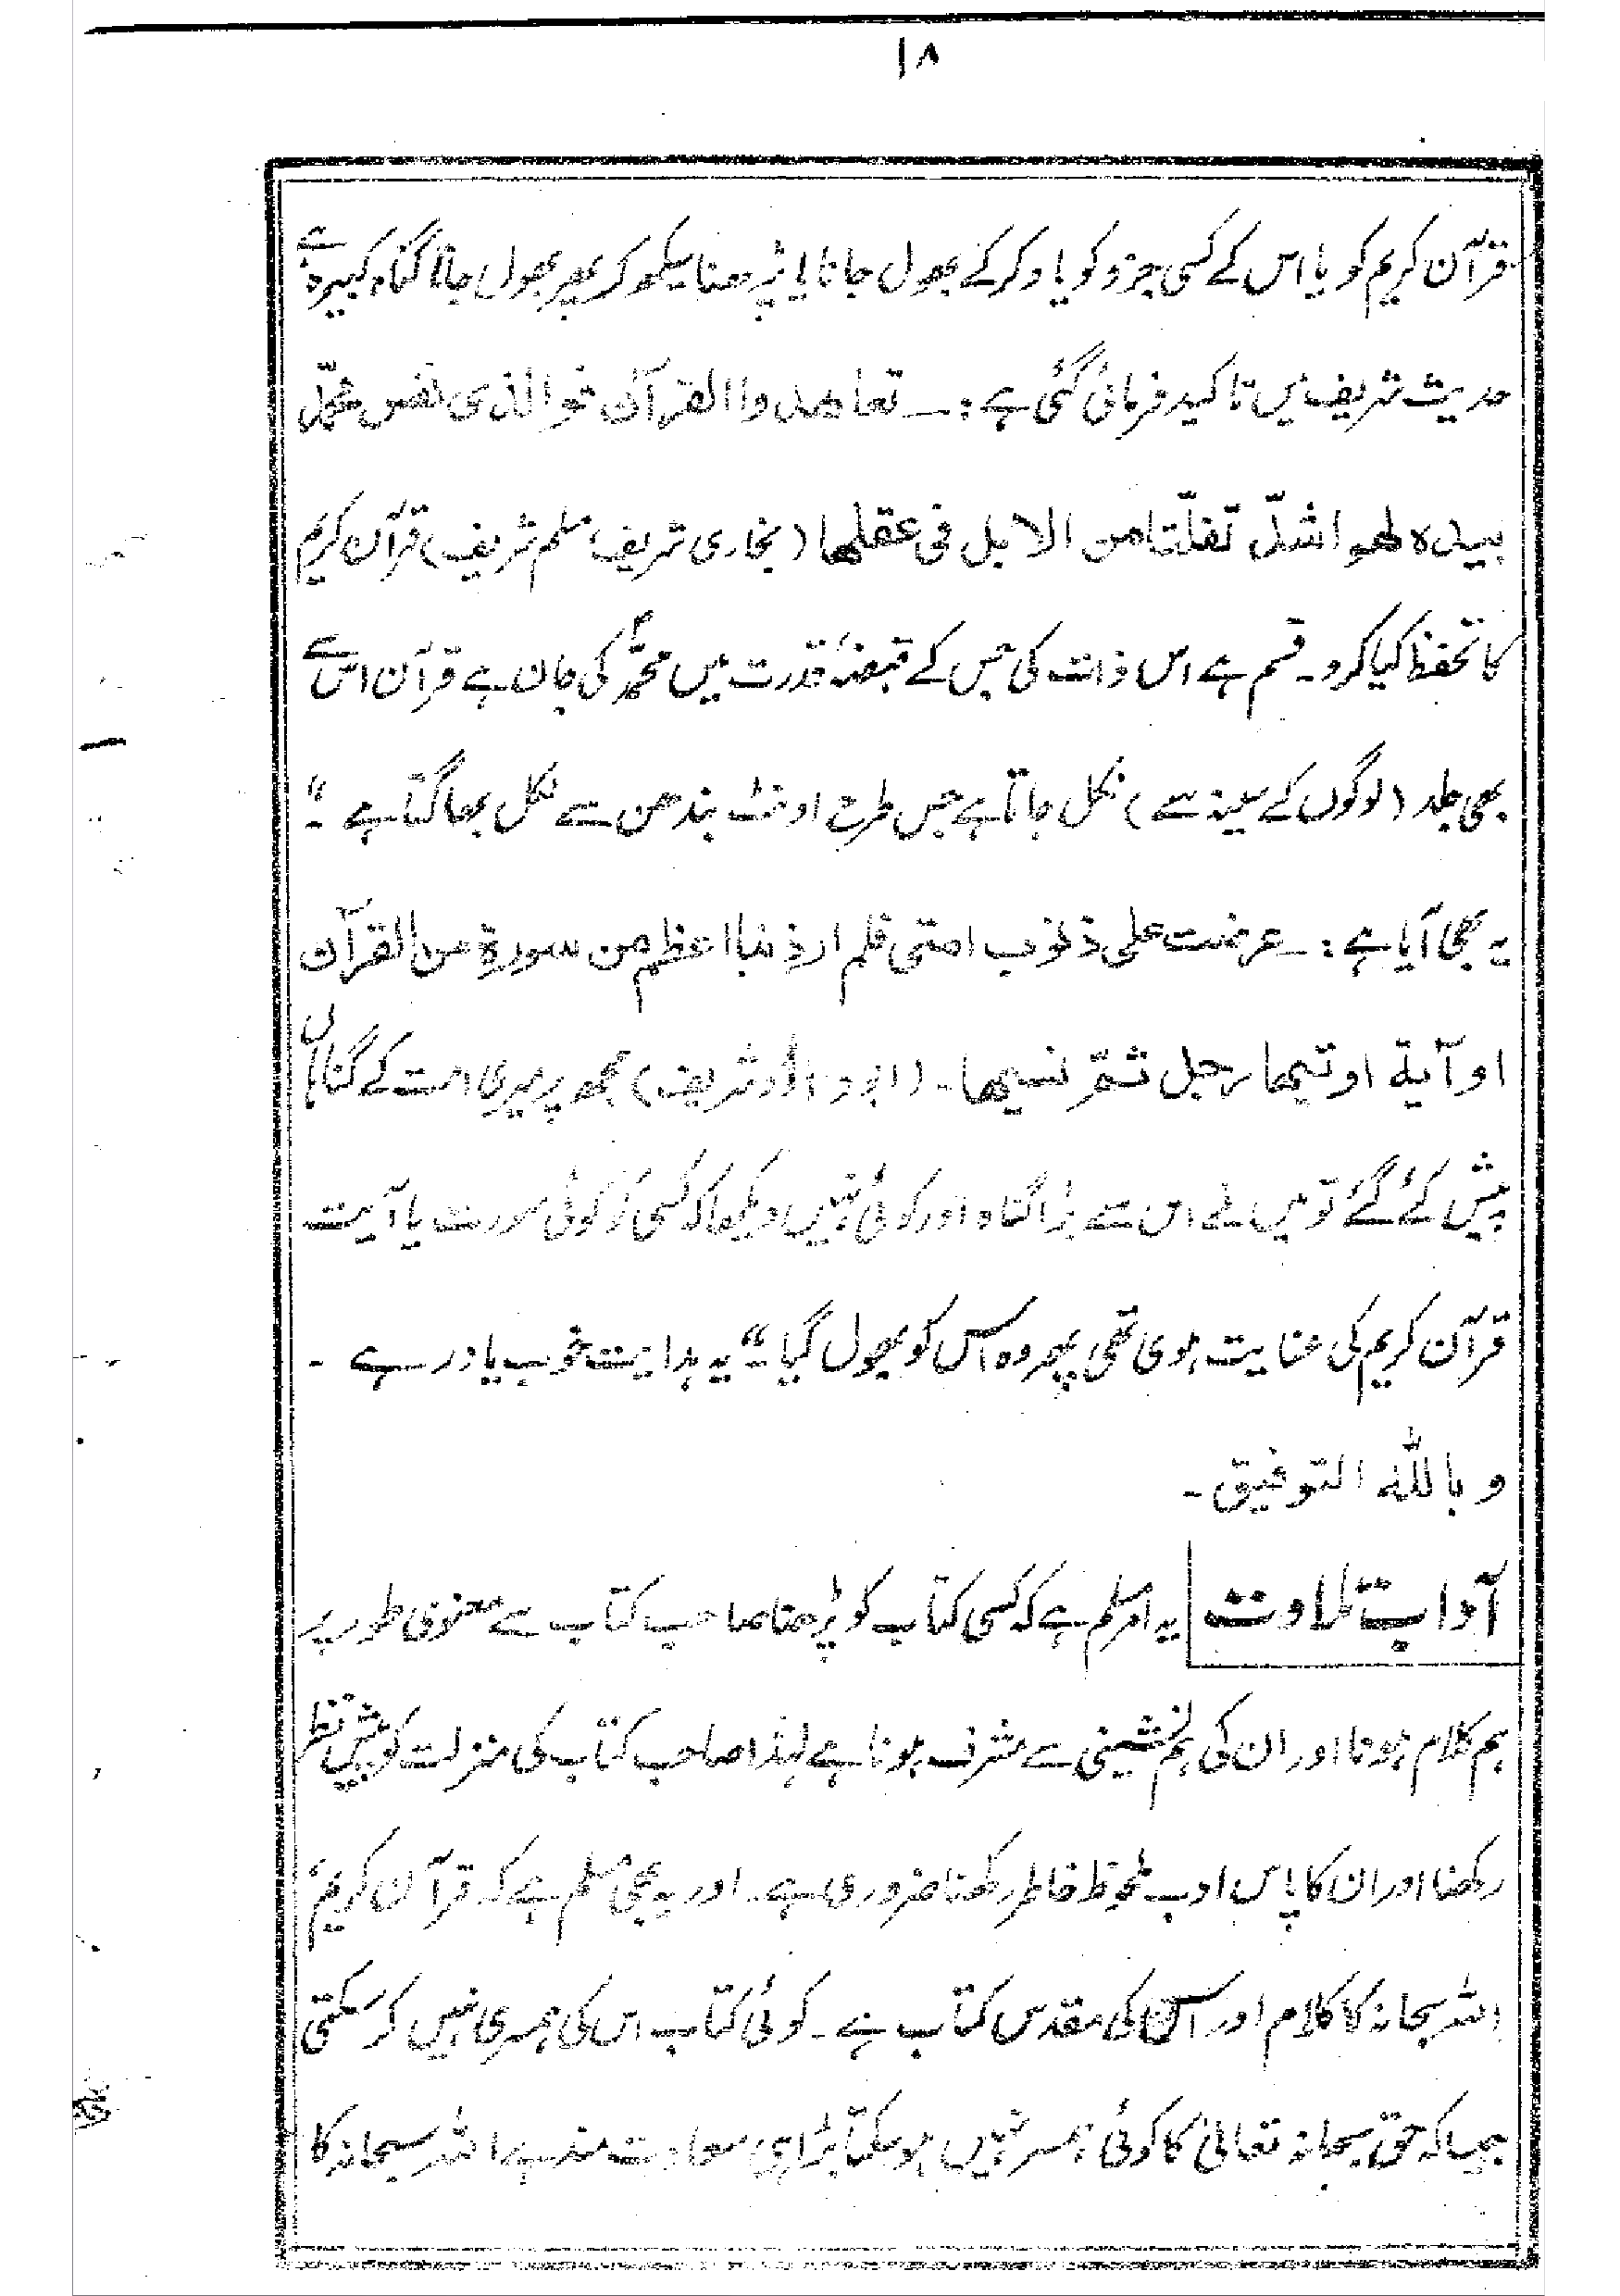 ۱۸
قرآن کریم کو یا اس کے کسی جزو کو یاد کرکے بھول جانا یا پڑھنا سیکھ کر پھر بھول جانا گناہ کبیرہ ہے
حدیث شریف میں تاکید فرمائی گئی ہے :۔ تعاھدوا القرآن فو الذی نفس محمّد
بیدہ لھو اشدّ تفلّتا من الابل فی عقلھا (بخاری شریف، مسلم شریف) قرآن کریم
کا تحفظ کیا کرو۔ قسم ہے اس ذات کی جس کے قبضۂ قدرت میں محمّدؐ کی جان ہے قرآن اس سے
بھی جلد (لوگوں کے سینہ سے) نکل جاتا ہے جس طرح اونٹ بندھن سے نکل بھاگتا ہے ۔“
یہ بھی آیا ہے :۔ عرضت علی ذنوب امتی فلم ار ذنبا اعظم من سورة من القرآن
او آیة اوتیھا رجل ثمّ نسیھا۔ (ابوداؤد شریف) مجھ پر میری امت کے گناہ
پیش کئے گئے تو میں نے اس سے بڑا گناہ اور کوئی نہیں دیکھا کہ کسی کو کوئی سورت یا آیت
قرآن کریم کی عنایت ہوی تھی پھر وہ اس کو بھول گیا ۔“ یہ ہدایت خوب یاد رہے ۔
و باللہ التوفیق ۔
آداب تلاوت یہ امر مسلم ہے کہ کسی کتاب کو پڑھنا صاحب کتاب سے معنوی طور پر
ہم کلام ہونا اور ان کی ہم نشینی سے مشرف ہونا ہے لہٰذا صاحب کتاب کی منزلت کو پیش نظر
رکھنا اور ان کا پاس ادب ملحوظ خاطر رکھنا ضروری ہے۔ اور یہ بھی مسلم ہے کہ قرآن کریم
اللہ سبحانہ کا کلام اور اس کی مقدس کتاب ہے ۔ کوئی کتاب اس کی ہمسری نہیں کرسکتی
جیسا کہ حق سبحانہ تعالیٰ کا کوئی ہمسر نہیں ہوسکتا بڑا ہی سعادت مند ہے اللہ سبحانہ کا